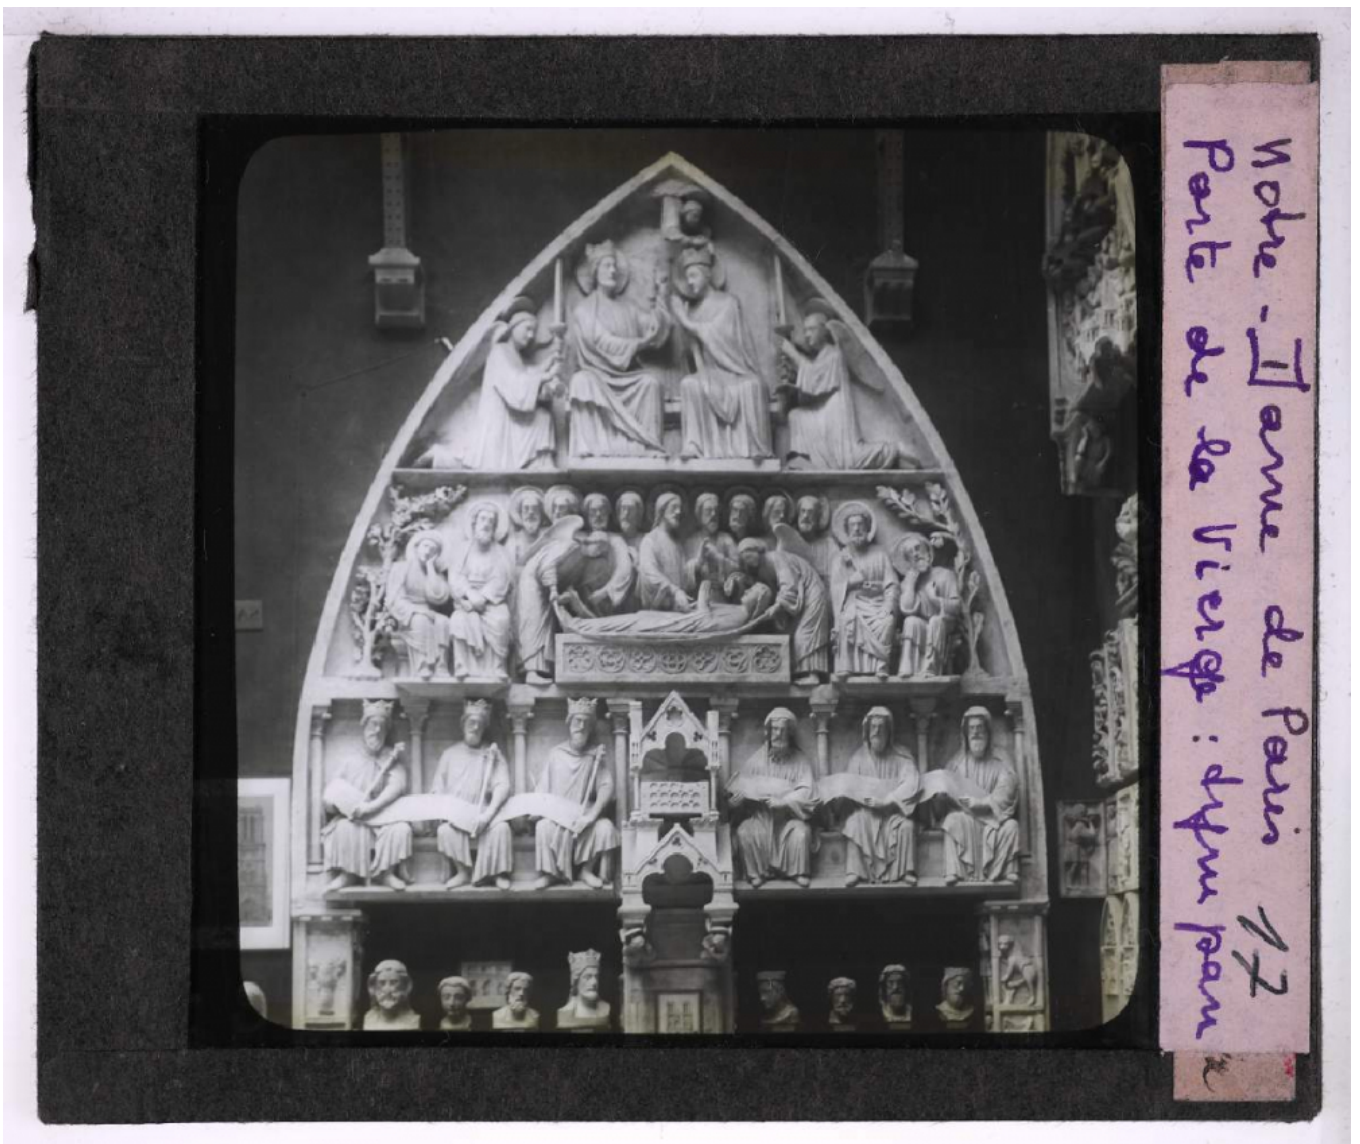 Notre-Dame de Paris 17
Porte de la Vierge : tympan